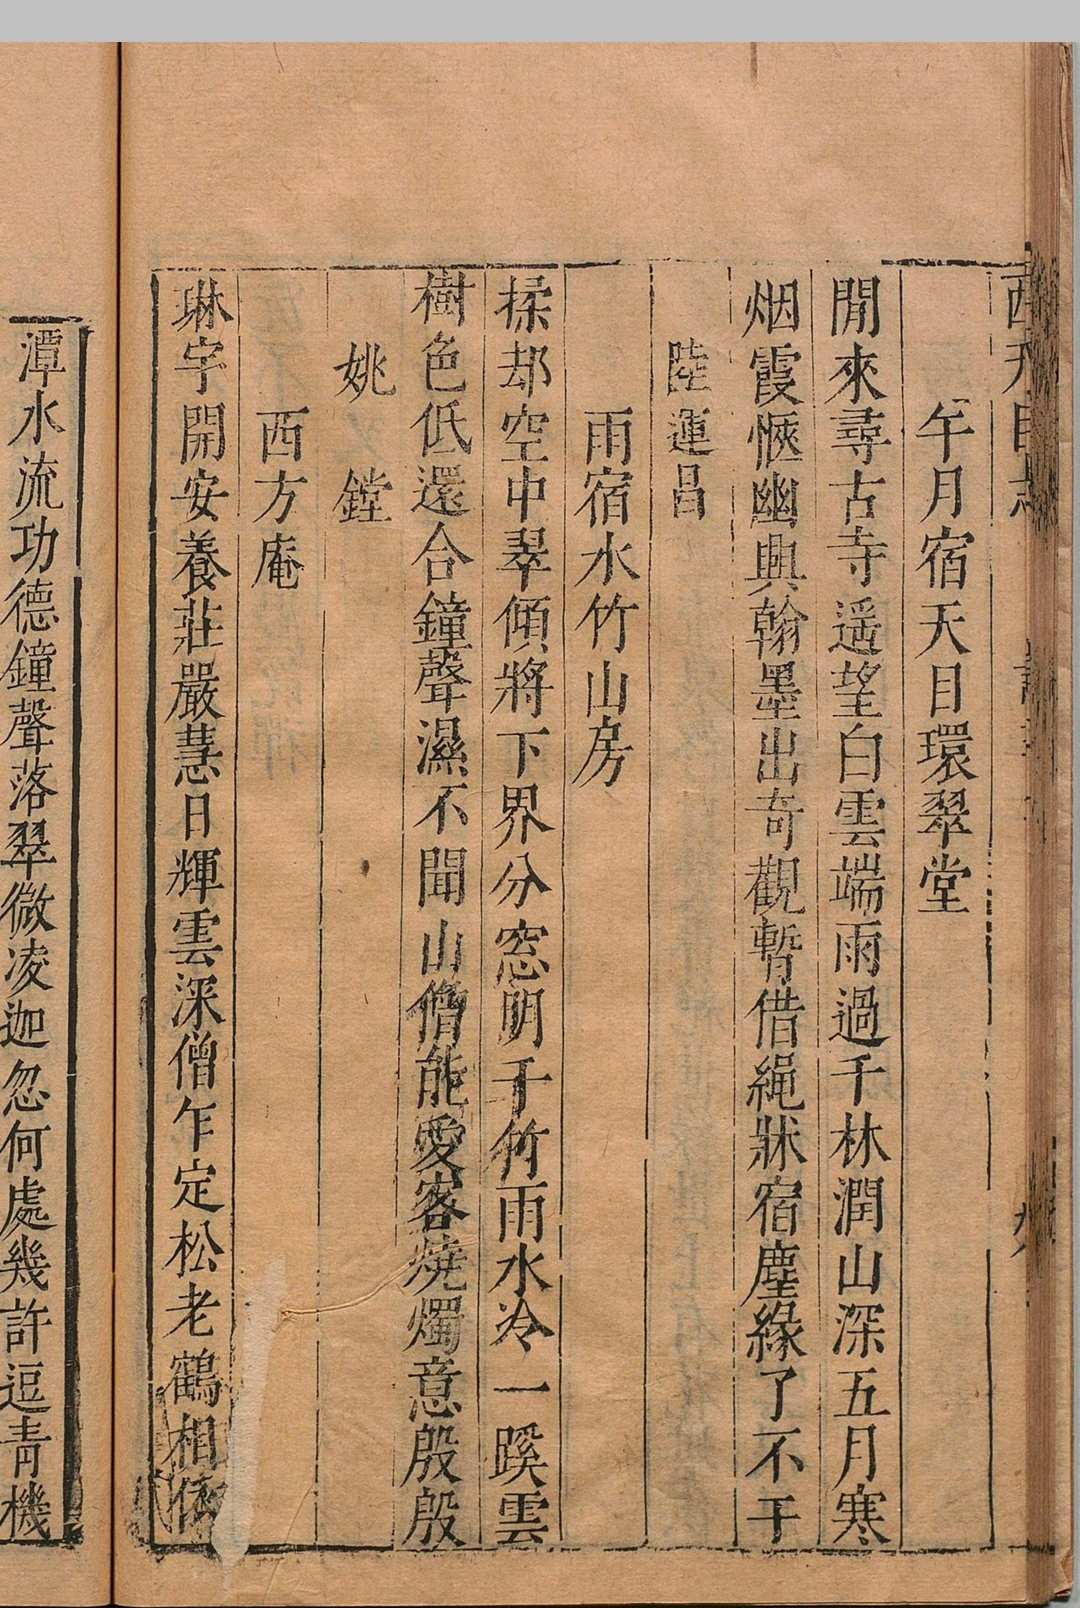 西天目志
午月宿天目環翠堂
閒來尋古寺遥望白雲端雨過千林潤山深五月寒
烟霞愜幽興翰墨出奇觀暫借繩牀宿塵緣了不干
陸運昌
雨宿水竹山房
揉却空中翠傾將下界分窓明千竹雨水冷一蹊雲
樹色低還合鐘聲濕不聞山僧能愛客燒燭意殷殷
姚鏜
西方庵
琳宇開安養莊嚴慧日輝雲深僧乍定松老鶴相依
潭水流功德鐘聲落翠微凌迦忽何處幾許逗青機